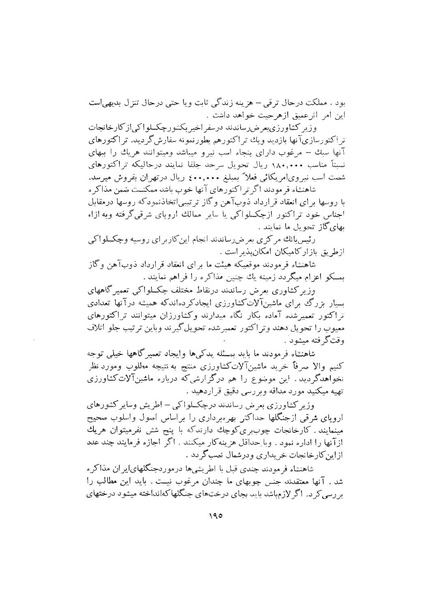 بود . مملکت درحال ترقی – هزینه زندگی ثابت ویا حتی درحال تنزل بدیهی‌است
این امر اثرعمیق ازهرحیث خواهد داشت .
وزیر کشاورزی بعرض رساندند درسفر اخیر بکشور چکسلواکی از کارخانجات
تراکتورسازی آنها بازدید و یک تراکتورهم بطور نمونه سفارش گردید. تراکتورهای
آنها سبک – مرغوب دارای پنجاه اسب نیرو میباشد ومیتوانند هریک را ببهای
نسبتاً مناسب ۱۸۰,۰۰۰ ریال تحویل سرحد جلفا نمایند درحالیکه تراکتورهای
شصت اسب نیروی امریکائی فعلا" بمبلغ ۴۰۰,۰۰۰ ریال درتهران بفروش میرسد.
شاهنشاه فرمودند اگر تراکتورهای آنها خوب باشد ممکنست ضمن مذاکره
با روسها برای انعقاد قرارداد ذوب‌آهن وگاز ترتیبی‌اتخاذنمودکه روسها درمقابل
اجناس خود تراکتور ازچکسلواکی یا سایر ممالک اروپای شرقی‌گرفته وبه ازاء
بهای‌گاز تحویل ما نمایند .
رئیس‌بانک مرکزی بعرض‌رساندند انجام این‌کاربرای روسیه وچکسلواکی
ازطریق بازارکامیکان امکان‌پذیراست .
شاهنشاه فرمودند موقعیکه هیئت ما برای انعقاد قرارداد ذوب‌آهن وگاز
بمسکو اعزام میگردد زمینه یک چنین مذاکره را فراهم نمایند .
وزیرکشاورزی بعرض رساندند درنقاط مختلف چکسلواکی تعمیرگاههای
بسیار بزرگ برای ماشین‌آلات‌کشاورزی ایجادکرده‌اندکه همیشه درآنها تعدادی
تراکتور تعمیرشده آماده بکار نگاه میدارند وکشاورزان میتوانند تراکتورهای
معیوب را تحویل دهند وتراکتور تعمیرشده تحویل‌گیرند وباین ترتیب جلو اتلاف
وقت‌گرفته میشود .
شاهنشاه فرمودند ما باید بمسئله یدکی‌ها وایجاد تعمیرگاهها خیلی توجه
کنیم والا صرفاً خرید ماشین‌آلات‌کشاورزی منتج به‌نتیجه مطلوب ومورد نظر
نخواهدگردید . این موضوع را هم درگزارشی‌که درباره ماشین‌آلات‌کشاورزی
تهیه میکنید مورد مداقه وبررسی دقیق قراردهید .
وزیرکشاورزی بعرض رساندند درچکسلواکی – اطریش وسایرکشورهای
اروپای شرقی ازجنگلها حداکثر بهره‌برداری را براساس اصول واسلوب صحیح
مینمایند . کارخانجات چوب‌بری‌کوچک دارندکه با پنج شش نفرمیتوان هریک
ازآنها را اداره نمود . وباحداقل هزینه‌کار میکنند . اگر اجازه فرمایند چند عدد
ازاین‌کارخانجات خریداری ودرشمال نصب‌گردد .
شاهنشاه فرمودند چندی قبل با اطریشی‌ها درموردجنگلهای‌ایران مذاکره
شد . آنها معتقدند جنس چوبهای ما چندان مرغوب نیست . باید این مطالب را
بررسی‌کرد. اگر لازم‌باشد باید بجای درخت‌های جنگلها که‌انداخته میشود درختهای
۱۹۵